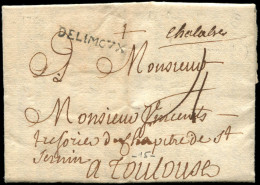 chalabre
DELIMOUX
A Monsieur
4
Monsieur Vincents
tresorier du chapitre de st
sernin
a Toulouse